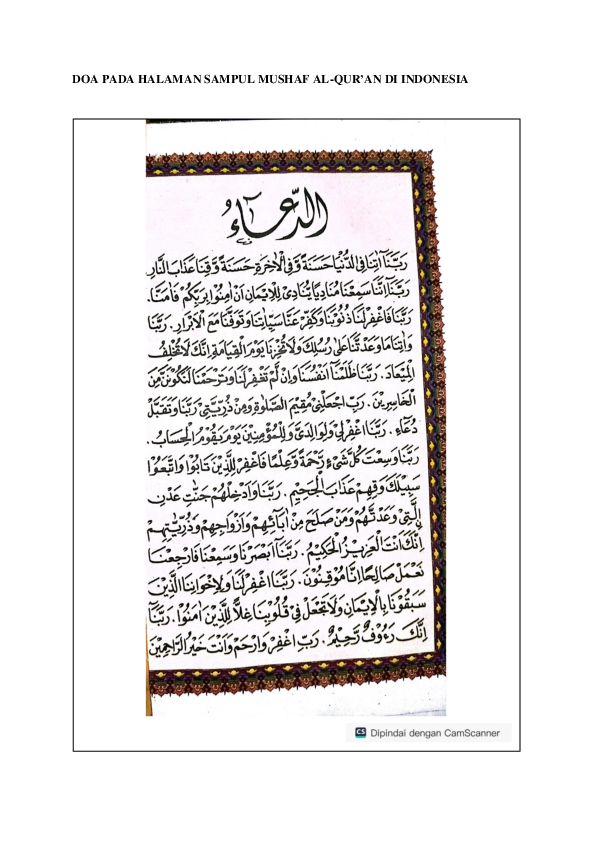 DOA PADA HALAMAN SAMPUL MUSHAF AL-QUR'AN DI INDONESIA
الدُّعَاءُ
رَبَّنَا اٰتِنَا فِى الدُّنْيَا حَسَنَةً وَّفِى الْاٰخِرَةِ حَسَنَةً وَّقِنَا عَذَابَ النَّارِ
رَبَّنَا اِنَّنَا سَمِعْنَا مُنَادِيًا يُّنَادِىْ لِلْاِيْمَانِ اَنْ اٰمِنُوْا بِرَبِّكُمْ فَاٰمَنَّا.
رَبَّنَا فَاغْفِرْ لَنَا ذُنُوْبَنَا وَكَفِّرْ عَنَّا سَيِّاٰتِنَا وَتَوَفَّنَا مَعَ الْاَبْرَارِ. رَبَّنَا
وَاٰتِنَا مَا وَعَدْتَّنَا عَلٰى رُسُلِكَ وَلَا تُخْزِنَا يَوْمَ الْقِيَامَةِ اِنَّكَ لَا تُخْلِفُ
الْمِيْعَادَ. رَبَّنَا ظَلَمْنَآ اَنْفُسَنَا وَاِنْ لَّمْ تَغْفِرْ لَنَا وَتَرْحَمْنَا لَنَكُوْنَنَّ مِنَ
الْخَاسِرِيْنَ. رَبِّ اجْعَلْنِىْ مُقِيْمَ الصَّلٰوةِ وَمِنْ ذُرِّيَّتِىْ رَبَّنَا وَتَقَبَّلْ
دُعَآءِ. رَبَّنَا اغْفِرْ لِىْ وَلِوَالِدَىَّ وَلِلْمُؤْمِنِيْنَ يَوْمَ يَقُوْمُ الْحِسَابُ.
رَبَّنَا وَسِعْتَ كُلَّ شَىْءٍ رَّحْمَةً وَّعِلْمًا فَاغْفِرْ لِلَّذِيْنَ تَابُوْا وَاتَّبَعُوْا
سَبِيْلَكَ وَقِهِمْ عَذَابَ الْجَحِيْمِ. رَبَّنَا وَاَدْخِلْهُمْ جَنّٰتِ عَدْنِ
الَّتِىْ وَعَدْتَّهُمْ وَمَنْ صَلَحَ مِنْ اٰبَآئِهِمْ وَاَزْوَاجِهِمْ وَذُرِّيّٰتِهِمْ
اِنَّكَ اَنْتَ الْعَزِيْزُ الْحَكِيْمُ. رَبَّنَآ اَبْصَرْنَا وَسَمِعْنَا فَارْجِعْنَا
نَعْمَلْ صَالِحًا اِنَّا مُوْقِنُوْنَ. رَبَّنَا اغْفِرْ لَنَا وَلِاِخْوَانِنَا الَّذِيْنَ
سَبَقُوْنَا بِالْاِيْمَانِ وَلَا تَجْعَلْ فِىْ قُلُوْبِنَا غِلًّا لِّلَّذِيْنَ اٰمَنُوْا. رَبَّنَآ
اِنَّكَ رَءُوْفٌ رَّحِيْمٌ. رَبِّ اغْفِرْ وَارْحَمْ وَاَنْتَ خَيْرُ الرَّاحِمِيْنَ
CS Dipindai dengan CamScanner